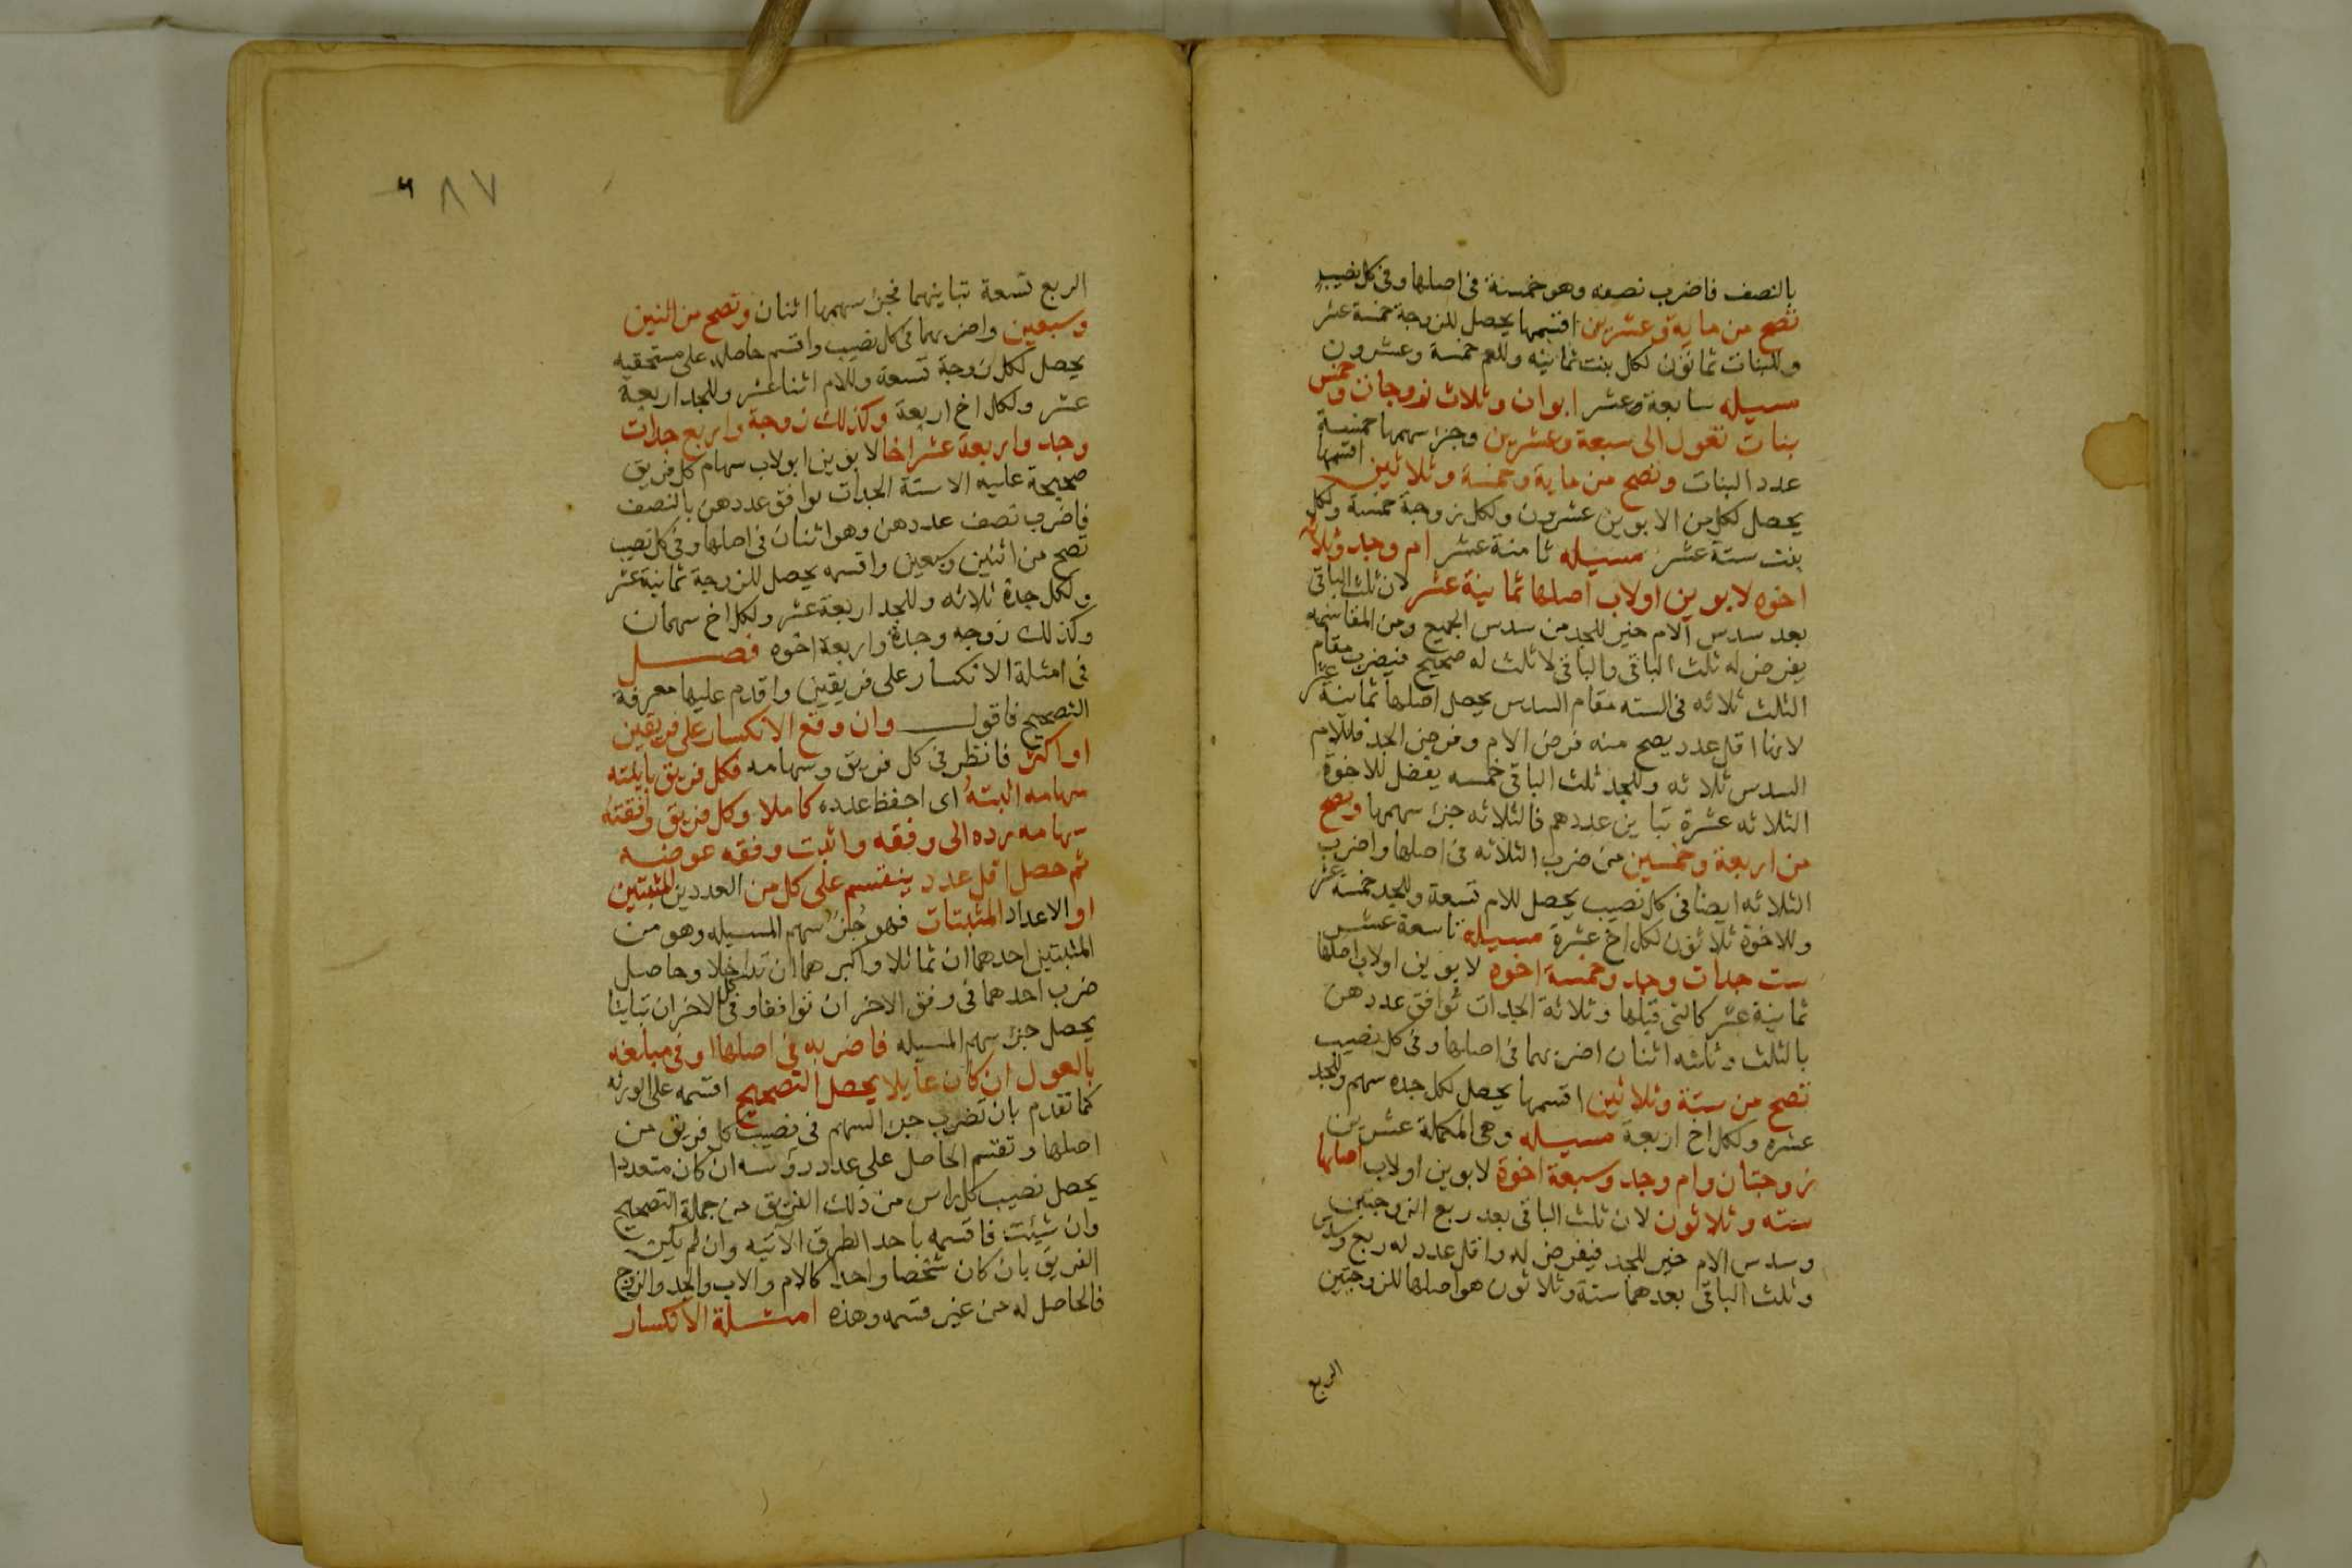 بالنصف فاضرب نصفه وهو خمسة فى اصلها وفى كل نصيب
تصح من ماية وعشرين اقسمها يحصل للزوجة خمسة عشر
وللبنات ثمانون لكل بنت ثمانيه وللعم خمسة وعشرون
مسيله سابعة عشر ابوان وثلاث زوجات وخمس
بنات تعول الى سبعة وعشرين وجزء سهمها خمسة
عدد البنات وتصح من ماية وخمسة وثلاثين اقسمها
يحصل لكل من الابوين عشرون ولكل زوجة خمسة ولكل
بنت ستة عشر مسيله ثامنة عشر ام وجد وثلاثة
اخوه لابوين اولاب اصلها ثمانية عشر لان ثلث الباقى
بعد سدس الام خير للجد من سدس الجميع ومن المقاسمه
يفرض له ثلث الباقى والباقى لا ثلث له صحيح فيضرب مقام
الثلث ثلاثه فى السته مقام السدس يحصل اصلها ثمانية عشر
لانها اقل عدد يصح منه فرض الام وفرض الجد فللام
السدس ثلاثه وللجد ثلث الباقى خمسه يفضل للاخوة
الثلاثه عشرة تباين عددهم فالثلاثه جزء سهمها وتصح
من اربعة وخمسين من ضرب الثلاثه فى اصلها واضرب
الثلاثه ايضا فى كل نصيب يحصل للام تسعة وللجد خمسة عشر
وللاخوة ثلاثون لكل اخ عشرة مسيله تاسعة عشر
ست جدات وجد وخمسة اخوه لابوين اولاب اصلها
ثمانية عشر كالتى قبلها وثلاثة الجدات توافق عددهن
بالثلث وثلثه اثنان اضربهما فى اصلها وفى كل نصيب
تصح من ستة وثلاثين اقسمها يحصل لكل جده سهم وللجد
عشره ولكل اخ اربعة مسيله وهى المكملة عشرين
زوجتان وام وجد وسبعة اخوة لابوين اولاب اصلها
سته وثلاثون لان ثلث الباقى بعد ربع الزوجتين
وسدس الام خير للجد فيفرض له واقل عدد له ربع وسدس
وثلث الباقى بعدهما ستة وثلاثون هو اصلها للزوجتين
الربع
٨٧
الربع تسعة تباينهما فجزء سهمها اثنان وتصح من اثنين
وسبعين واضربهما فى كل نصيب واقسم حاصله على مستحقيه
يحصل لكل زوجة تسعة وللام اثنا عشر وللجد اربعة
عشر ولكل اخ اربعة وكذلك زوجة واربع جدات
وجد واربعة عشر اخا لابوين اولاب سهام كل فريق
صحيحة عليه الا ستة الجدات توافق عددهن بالنصف
فاضرب نصف عددهن وهو اثنان فى اصلها وفى كل نصيب
تصح من اثنين وسبعين واقسمه يحصل للزوجة ثمانية عشر
ولكل جدة ثلاثه وللجد اربعة عشر ولكل اخ سهمان
وكذلك زوجه وجدة واربعة اخوه فصل
فى امثلة الانكسار على فريقين واقدم عليها معرفة
التصحيح فاقول وان وقع الانكسار على فريقين
او اكثر فانظر فى كل فريق وسهامه فكل فريق باينته
سهامه اثبته اى احفظ عدده كاملا وكل فريق وافقته
سهامه رده الى وفقه واثبت وفقه عوضه
ثم حصل اقل عدد ينقسم على كل من العددين المثبتين
او الاعداد المثبتات فهو جزء سهم المسيله وهو من
المثبتين احدهما ان تماثلا واكبرهما ان تداخلا وحاصل
ضرب احدهما فى وفق الاخر ان توافقا وفى كل الاخر ان تباينا
يحصل جزء سهم المسيله فاضربه فى اصلها او فى مبلغه
بالعول ان كان عايلا يحصل التصحيح اقسمه على الورثه
كما تقدم بان تضرب جزء السهم فى نصيب كل فريق من
اصلها وتقسم الحاصل على عدد روسه ان كان متعددا
يحصل نصيب كل راس من ذلك الفريق من جملة التصحيح
وان شيت فاقسمه باحد الطرق الاتيه وان لم يكن
الفريق بان كان شخصا واحدا كالام والاب والجد والزوج
فالحاصل له من غير قسمه وهذه امثلة الانكسار